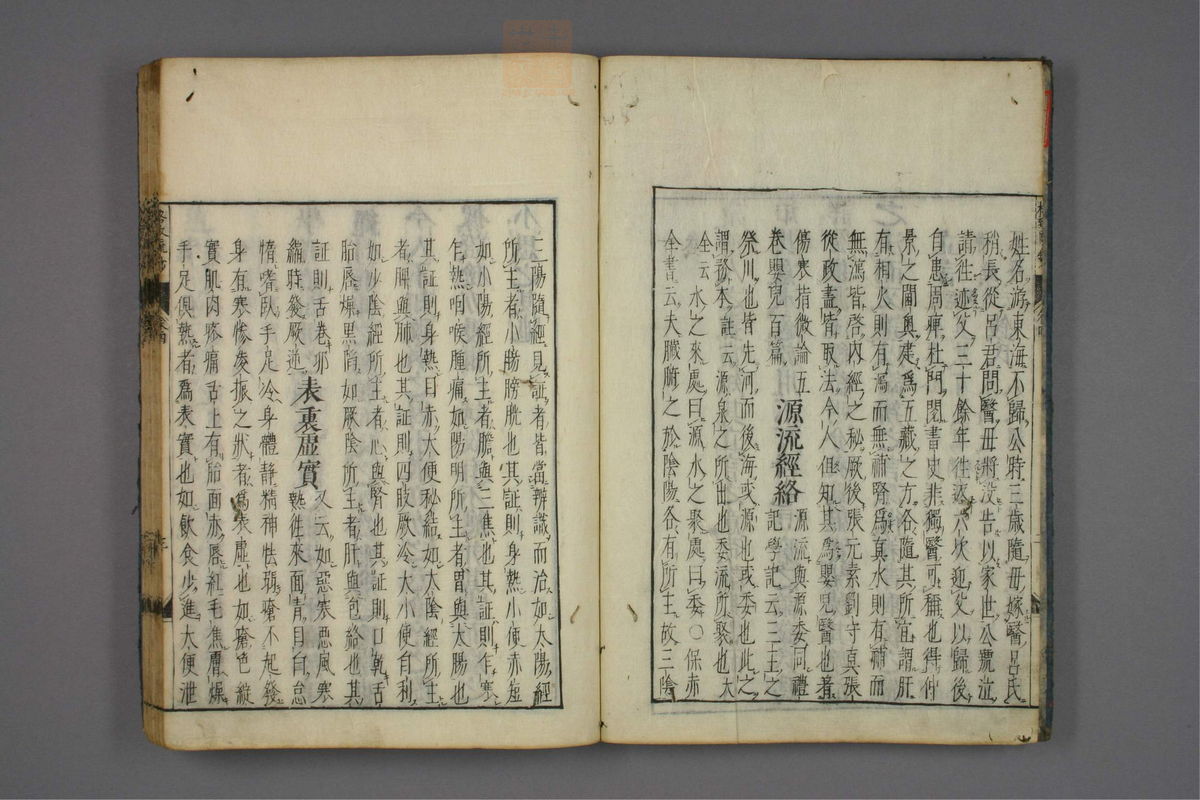 姓名游東海不歸公時三歳隨毋嫁醫呂氏
稍長從呂君問醫毋將没告以家世公號泣
請往迹父三十餘年往返六次迎父以歸後
自患周痺杜門閲書史非獨醫可稱也得仲
景之閫奥建爲五藏之方各隨其所宜謂肝
有相火則有瀉而無補腎爲真水則有補而
無瀉皆啓内經之秘厥後張元素劉守真張
從政盡皆取法今人但知其爲嬰児醫也著
傷寒指微論五
卷嬰児百篇
源流經絡
源流與源委同禮
記學記云三王之
祭川也皆先河而後海或源也或委也此之
謂務本註云源泉之所出也委流所聚也大
全云水之來處曰源水之聚處曰委○保赤
全書云夫臟腑之於陰陽各有所主故三陰
三陽隨經見証者皆當辨識而治如太陽經
所主者小膓膀胱也其証則身熱小便赤短
如小陽經所主者膽與三焦也其証則乍寒
乍熱咽喉腫痛如陽明所主者胃與太陽也
其証則身熱目赤大便秘結如太陰經所主
者脾與肺也其証則四肢厥冷大小便自利
如少陰經所主者心與腎也其証則口乾舌
胎唇燥黒陷如厥陰所主者肝與包絡也其
証則舌卷卵
縮時發厥逆
表裏虚實
又云如惡寒惡風寒
熱往來面青目白怠
惰嗜臥手足冷身體靜精神怯弱瘡不起發
身有寒慘凌振之狀者爲表虚也如瘡色縱
實肌肉疼痛舌上有胎面赤唇紅毛焦膚燥
手足俱熱者爲表實也如飲食少進大便泄